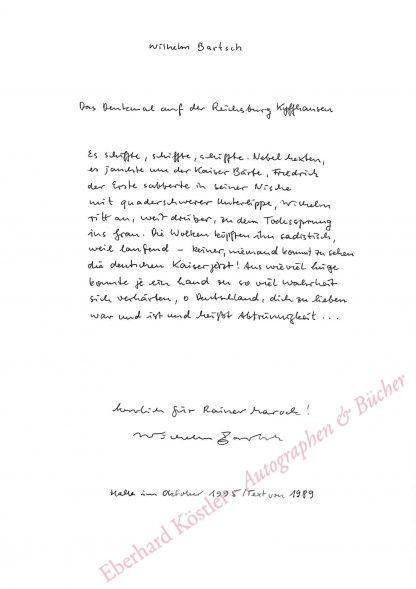 Wilhelm Bartsch
Das Denkmal auf der Reichsburg Kyffhausen
Es schiffte, schiffte, schiffte. Nebel hexten,
es jauchte um der Kaiser Bärte, Friedrich
der Erste sabberte in seiner Nische
mit quaderschwerer Unterlippe, Wilhelm
ritt an, weit drüber, zu dem Todessprung
ins Grau. Die Wolken köpften ihn sadistisch,
weil laufend – keiner, niemand kommt zu sehen
die deutschen Kaiser jetzt! Aus wieviel Lüge
konnte je ein Land zu so viel Wahrheit
sich verhärten, o Deutschland, dich zu lieben
war und ist und heißt Abtrünnigkeit...
herzlich für Rainer !
Wilhelm Bartsch
Halle im Oktober 1995/Text von 1989
Eberhard Köstler - Autographen & Bücher